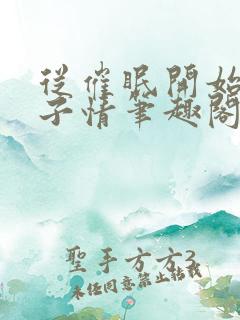 從催眠開始
子情筆趣閣
聖手方方3
未經同意禁止轉載